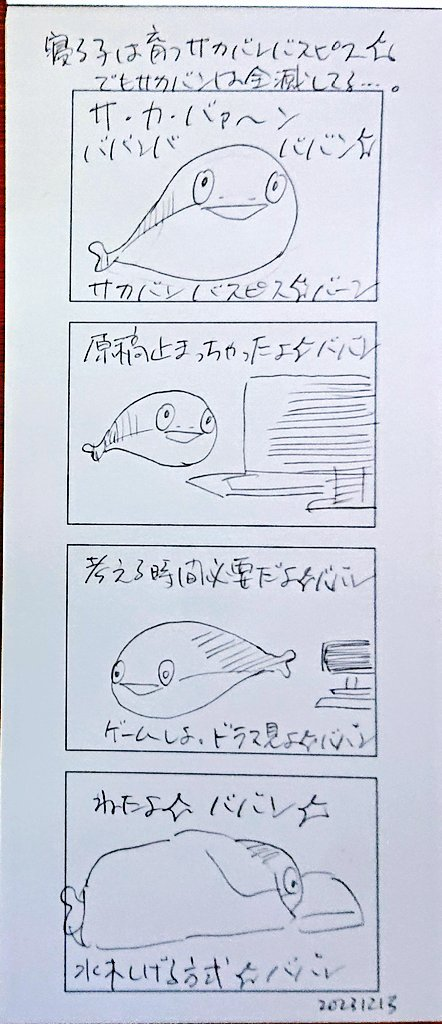 寝る子は育つサカバンバスピス☆
でもサカバンは全滅してる…。
サ・カ・バァ〜ン
ババンバ ババン☆
サカバンバスピス☆バーン
原稿止まっちゃったよ☆ババン
考える時間必要だよ☆ババン
ゲームしよ、ドラマ見よ☆ババン
ねたよ☆ ババン☆
水木しげる方式☆ババン
20231213